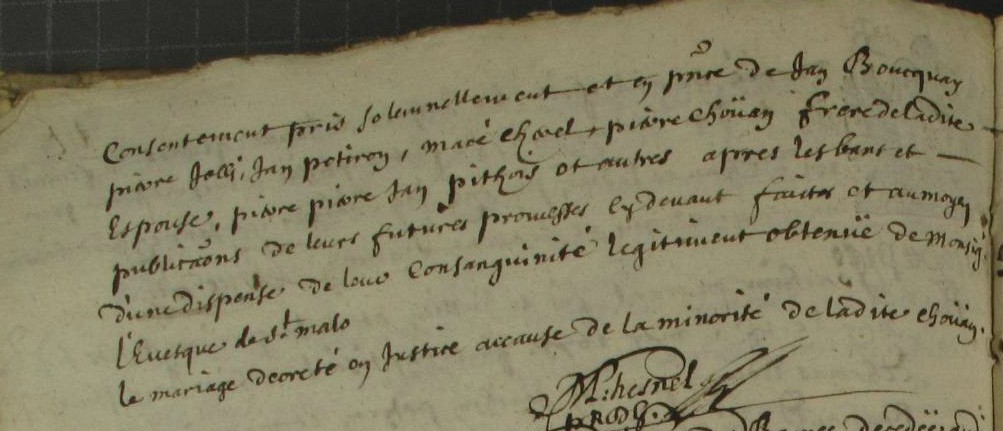 Consentement pris solemnellement et en p̃nce de Jan Boucquay
pierre Jolli, Jan petiron, macé chovel, pierre Choüan frere de ladite
Espouse, pierre pierre Jan pithois et autres apres les bans et
publicãons de leurs futures promesses cy devant faites et au moyen
d'une dispense de leur Consanguinité legitiment obtenuë de Monsig.
l'Evesque de St malo
le mariage decreté en Justice accause de la minorité de ladite choüan.
M: hesnel